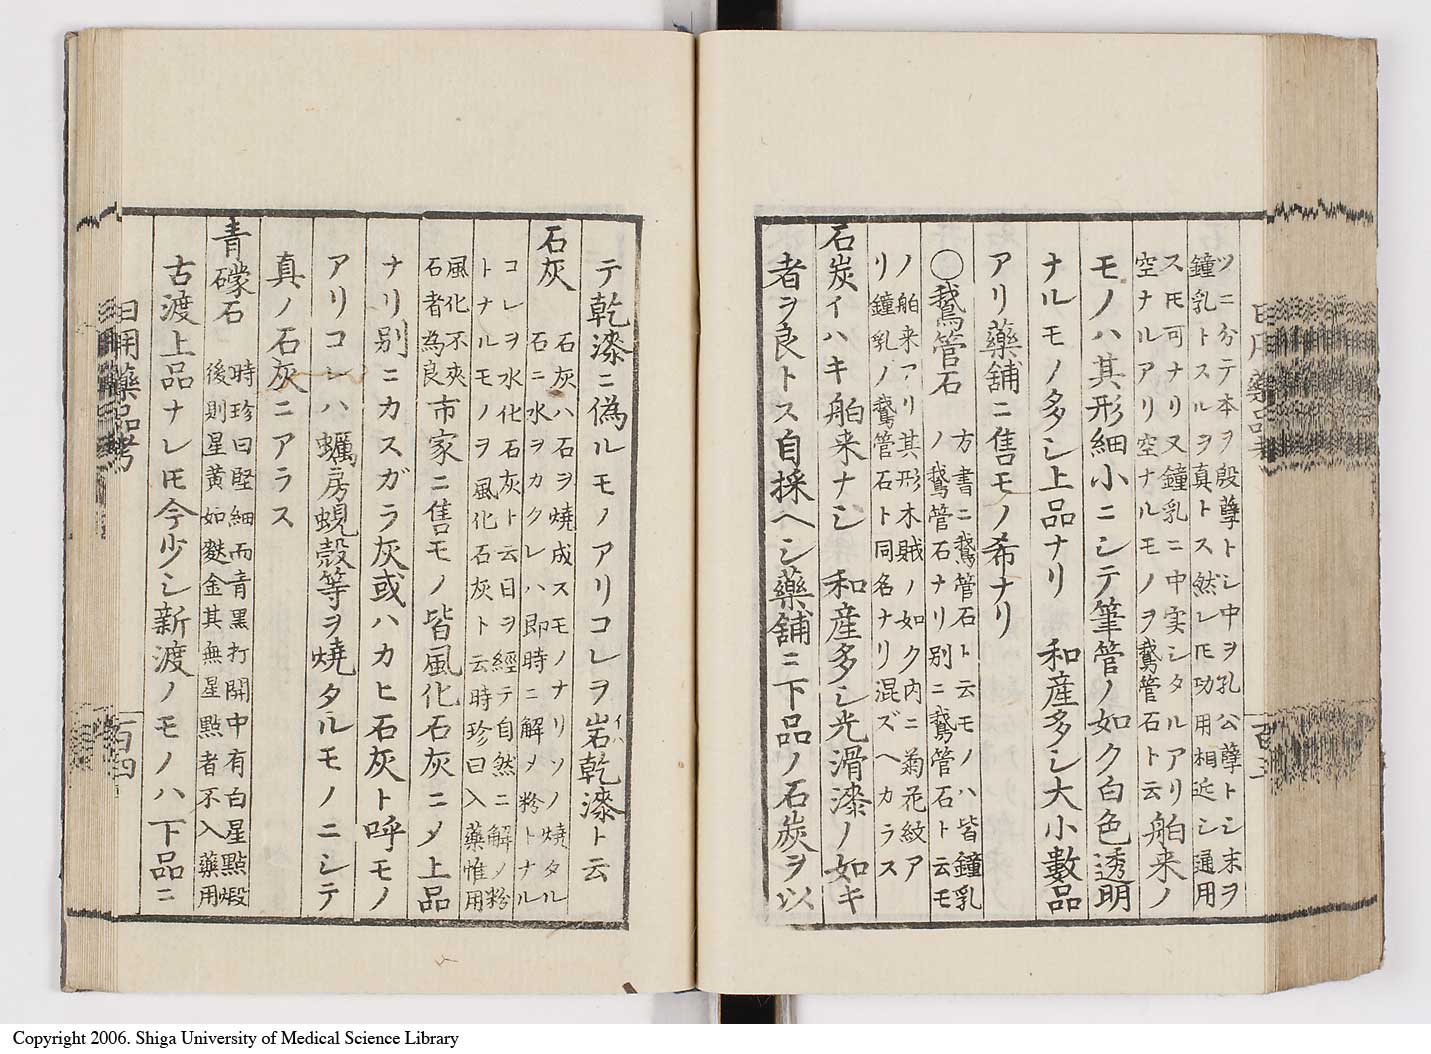 ツニ分テ本ヲ殷孽トシ中ヲ孔公孽トシ末ヲ
鐘乳トスルヲ真トス然レ𪜈功用相近シ通用
ス𪜈可ナリ又鐘乳ニ中実シタルアリ
空ナルアリ空ナルモノヲ鵞管石ト云
舶来ノ
モノハ其形細小ニシテ筆管ノ如ク白色透明
ナルモノ多シ上品ナリ　和産多シ大小數品
アリ藥舗ニ售モノ希ナリ
○鵞管石
方書ニ鵞管石ト云モノハ皆鐘乳
ノ鵞管石ナリ別ニ鵞管石ト云モ
ノ舶来アリ其形木賊ノ如ク内ニ菊花紋ア
リ鐘乳ノ鵞管石ト同名ナリ混ズヘカラス
石炭イハキ舶来ナシ　和産多シ光滑漆ノ如キ
者ヲ良トス自採ヘシ藥舗ニ下品ノ石炭ヲ以
日用藥品考
テ乾漆ニ偽ルモノアリコレヲ岩乾漆ト云
イハ
石灰
石灰ハ石ヲ燒成スモノナリソノ燒タル
石ニ水ヲカクレハ即時ニ解メ粉トナル
コレヲ水化石灰ト云日ヲ經テ自然ニ解ノ粉
トナルモノヲ風化石灰ト云時珍曰入藥惟用
風化不夾
石者為良
市家ニ售モノ皆風化石灰ニメ上品
ナリ別ニカスガラ灰或ハカヒ石灰ト呼モノ
アリコレハ蠣房蜆殼等ヲ燒タルモノニシテ
真ノ石灰ニアラス
青礞石
時珍曰堅細而青黑打開中有白星點煅
後則星黄如麩金其無星點者不入藥用
古渡上品ナレ𪜈今少シ新渡ノモノハ下品ニ
日用藥品考
百四
Copyright 2006. Shiga University of Medical Science Library